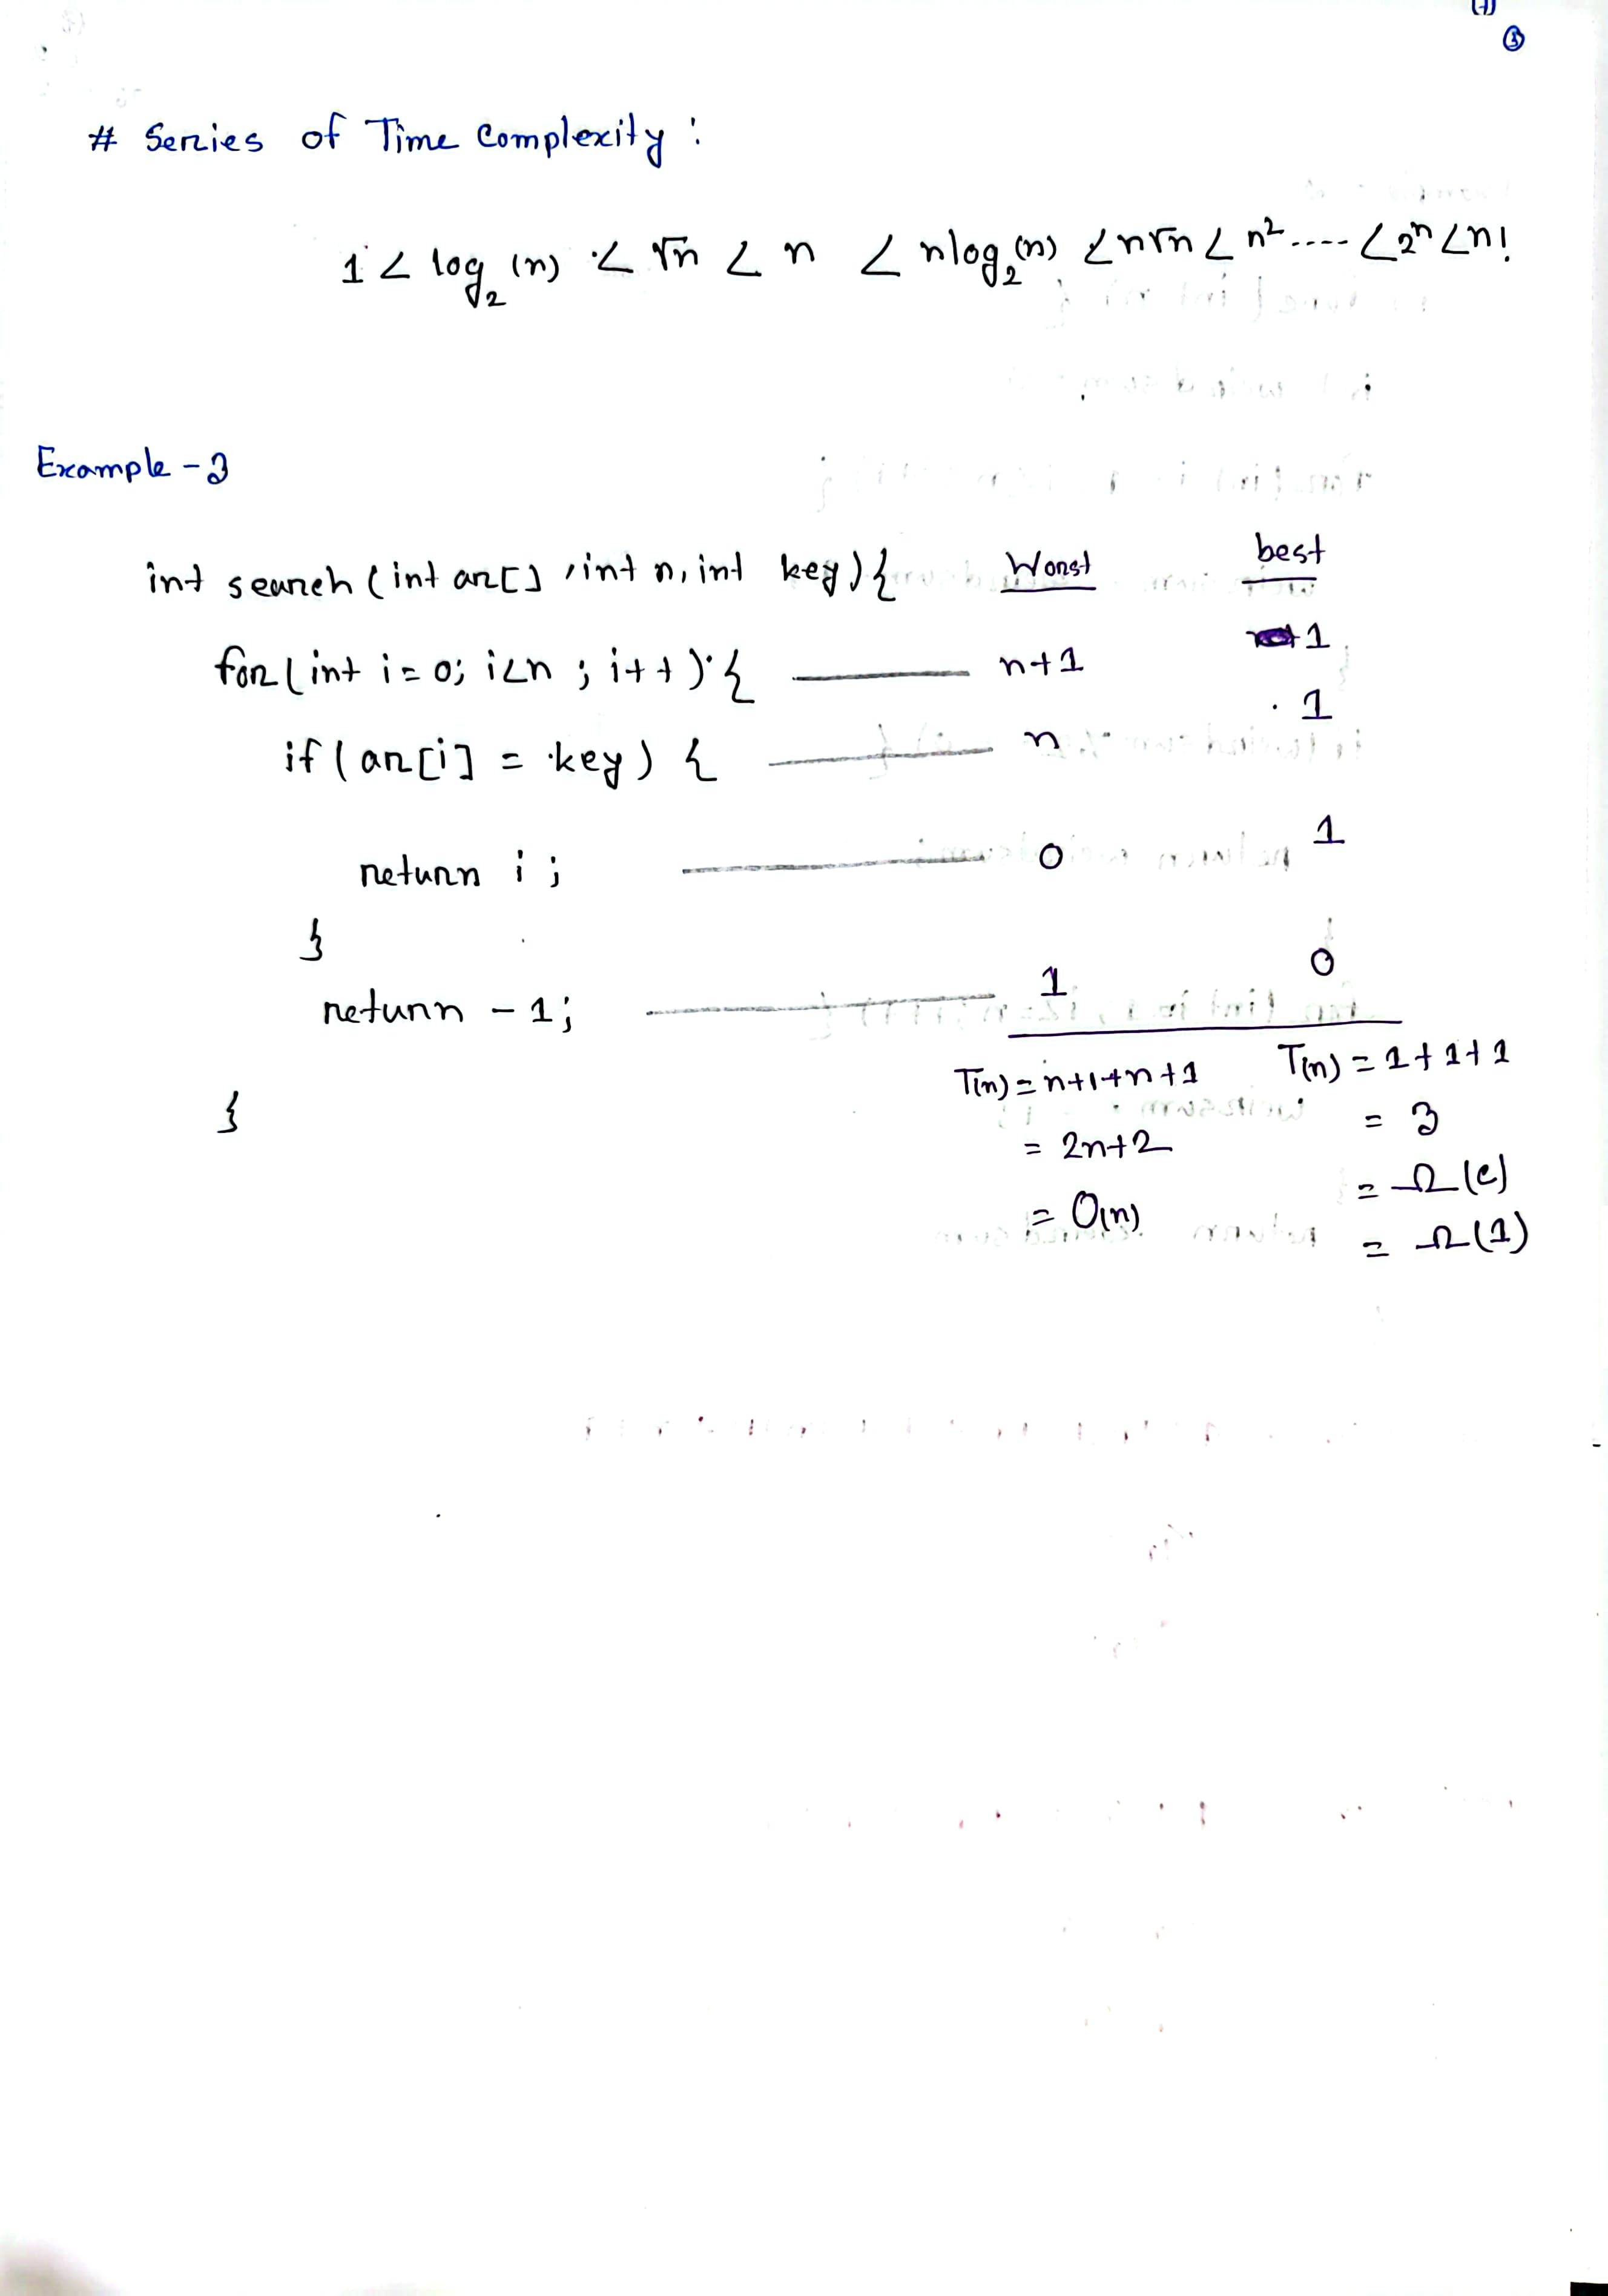 (7)
③
# Series of Time Complexity :
1 < log₂(n) < √n < n < nlog₂(n) < n√n < n² .... < 2ⁿ < n!
Example - 3
int search (int ar[] , int n, int key) { Worst best
for (int i = 0; i<n ; i++) { n+1 1
if ( ar[i] = key) { n 1
return i ; 0 1
}
return - 1; 1 0
T(n) = n+1+n+1 T(n) = 1+1+1
} = 2n+2 = 3
= O(n) = Ω(c)
= Ω(1)